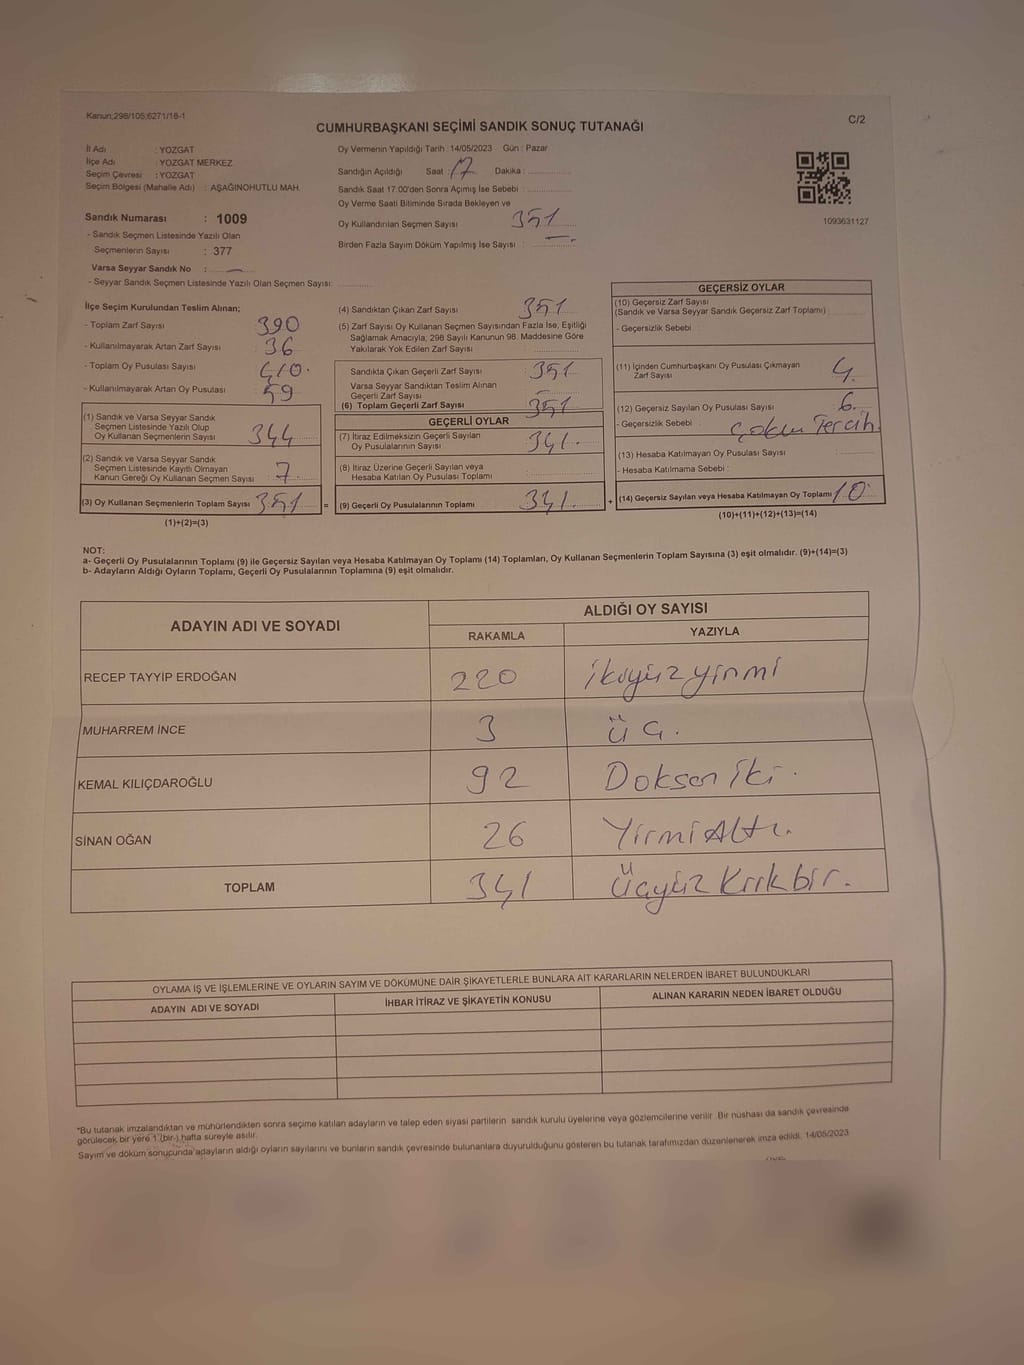 Kanun;298/105;6271/18-1
C/2
CUMHURBAŞKANI SEÇİMİ SANDIK SONUÇ TUTANAĞI
İl Adı : YOZGAT
İlçe Adı : YOZGAT MERKEZ
Seçim Çevresi : YOZGAT
Seçim Bölgesi (Mahalle Adı) : AŞAĞINOHUTLU MAH.
Sandık Numarası : 1009
- Sandık Seçmen Listesinde Yazılı Olan
Seçmenlerin Sayısı : 377
Varsa Seyyar Sandık No : —
- Seyyar Sandık Seçmen Listesinde Yazılı Olan Seçmen Sayısı:
Oy Vermenin Yapıldığı Tarih : 14/05/2023 Gün : Pazar
Sandığın Açıldığı Saat : 17 Dakika :
Sandık Saat 17.00'den Sonra Açımış İse Sebebi :
Oy Verme Saati Bitiminde Sırada Bekleyen ve
Oy Kullandırılan Seçmen Sayısı 351
Birden Fazla Sayım Döküm Yapılmış İse Sayısı : —
1093631127
İlçe Seçim Kurulundan Teslim Alınan;
- Toplam Zarf Sayısı 390
- Kullanılmayarak Artan Zarf Sayısı 36
- Toplam Oy Pusulası Sayısı 410.
- Kullanılmayarak Artan Oy Pusulası 59
(1) Sandık ve Varsa Seyyar Sandık
Seçmen Listesinde Yazılı Olup
Oy Kullanan Seçmenlerin Sayısı 344
(2) Sandık ve Varsa Seyyar Sandık
Seçmen Listesinde Kayıtlı Olmayan
Kanun Gereği Oy Kullanan Seçmen Sayısı 7
(3) Oy Kullanan Seçmenlerin Toplam Sayısı 351 =
(1)+(2)=(3)
(4) Sandıktan Çıkan Zarf Sayısı 351
(5) Zarf Sayısı Oy Kullanan Seçmen Sayısından Fazla İse, Eşitliği
Sağlamak Amacıyla; 298 Sayılı Kanunun 98. Maddesine Göre
Yakılarak Yok Edilen Zarf Sayısı
Sandıkta Çıkan Geçerli Zarf Sayısı 351
Varsa Seyyar Sandıktan Teslim Alınan
Geçerli Zarf Sayısı —
(6) Toplam Geçerli Zarf Sayısı 351
GEÇERLİ OYLAR
(7) İtiraz Edilmeksizin Geçerli Sayılan
Oy Pusulalarının Sayısı 341.
(8) İtiraz Üzerine Geçerli Sayılan veya
Hesaba Katılan Oy Pusulası Toplamı
(9) Geçerli Oy Pusulalarının Toplamı 341. +
GEÇERSİZ OYLAR
(10) Geçersiz Zarf Sayısı
(Sandık ve Varsa Seyyar Sandık Geçersiz Zarf Toplamı)
- Geçersizlik Sebebi :
(11) İçinden Cumhurbaşkanı Oy Pusulası Çıkmayan
Zarf Sayısı 4.
(12) Geçersiz Sayılan Oy Pusulası Sayısı 6.
- Geçersizlik Sebebi : Çoklu Tercih
(13) Hesaba Katılmayan Oy Pusulası Sayısı
- Hesaba Katılmama Sebebi :
(14) Geçersiz Sayılan veya Hesaba Katılmayan Oy Toplamı 10
(10)+(11)+(12)+(13)=(14)
NOT:
a- Geçerli Oy Pusulalarının Toplamı (9) ile Geçersiz Sayılan veya Hesaba Katılmayan Oy Toplamı (14) Toplamları, Oy Kullanan Seçmenlerin Toplam Sayısına (3) eşit olmalıdır. (9)+(14)=(3)
b- Adayların Aldığı Oyların Toplamı, Geçerli Oy Pusulalarının Toplamına (9) eşit olmalıdır.
ADAYIN ADI VE SOYADI ALDIĞI OY SAYISI
RAKAMLA YAZIYLA
RECEP TAYYİP ERDOĞAN 220 ikiyüzyirmi
MUHARREM İNCE 3 üç.
KEMAL KILIÇDAROĞLU 92 Doksan iki.
SİNAN OĞAN 26 Yirmi Altı.
TOPLAM 341 Üçyüz Kırkbir.
OYLAMA İŞ VE İŞLEMLERİNE VE OYLARIN SAYIM VE DÖKÜMÜNE DAİR ŞİKAYETLERLE BUNLARA AİT KARARLARIN NELERDEN İBARET BULUNDUKLARI
ADAYIN ADI VE SOYADI İHBAR İTİRAZ VE ŞİKAYETİN KONUSU ALINAN KARARIN NEDEN İBARET OLDUĞU
*Bu tutanak imzalandıktan ve mühürlendikten sonra seçime katılan adayların ve talep eden siyasi partilerin sandık kurulu üyelerine veya gözlemcilerine verilir. Bir nüshası da sandık çevresinde
görülecek bir yere 1 (bir ) hafta süreyle asılır.
Sayım ve döküm sonucunda adayların aldığı oyların sayılarını ve bunların sandık çevresinde bulunanlara duyurulduğunu gösteren bu tutanak tarafımızdan düzenlenerek imza edildi. 14/05/2023